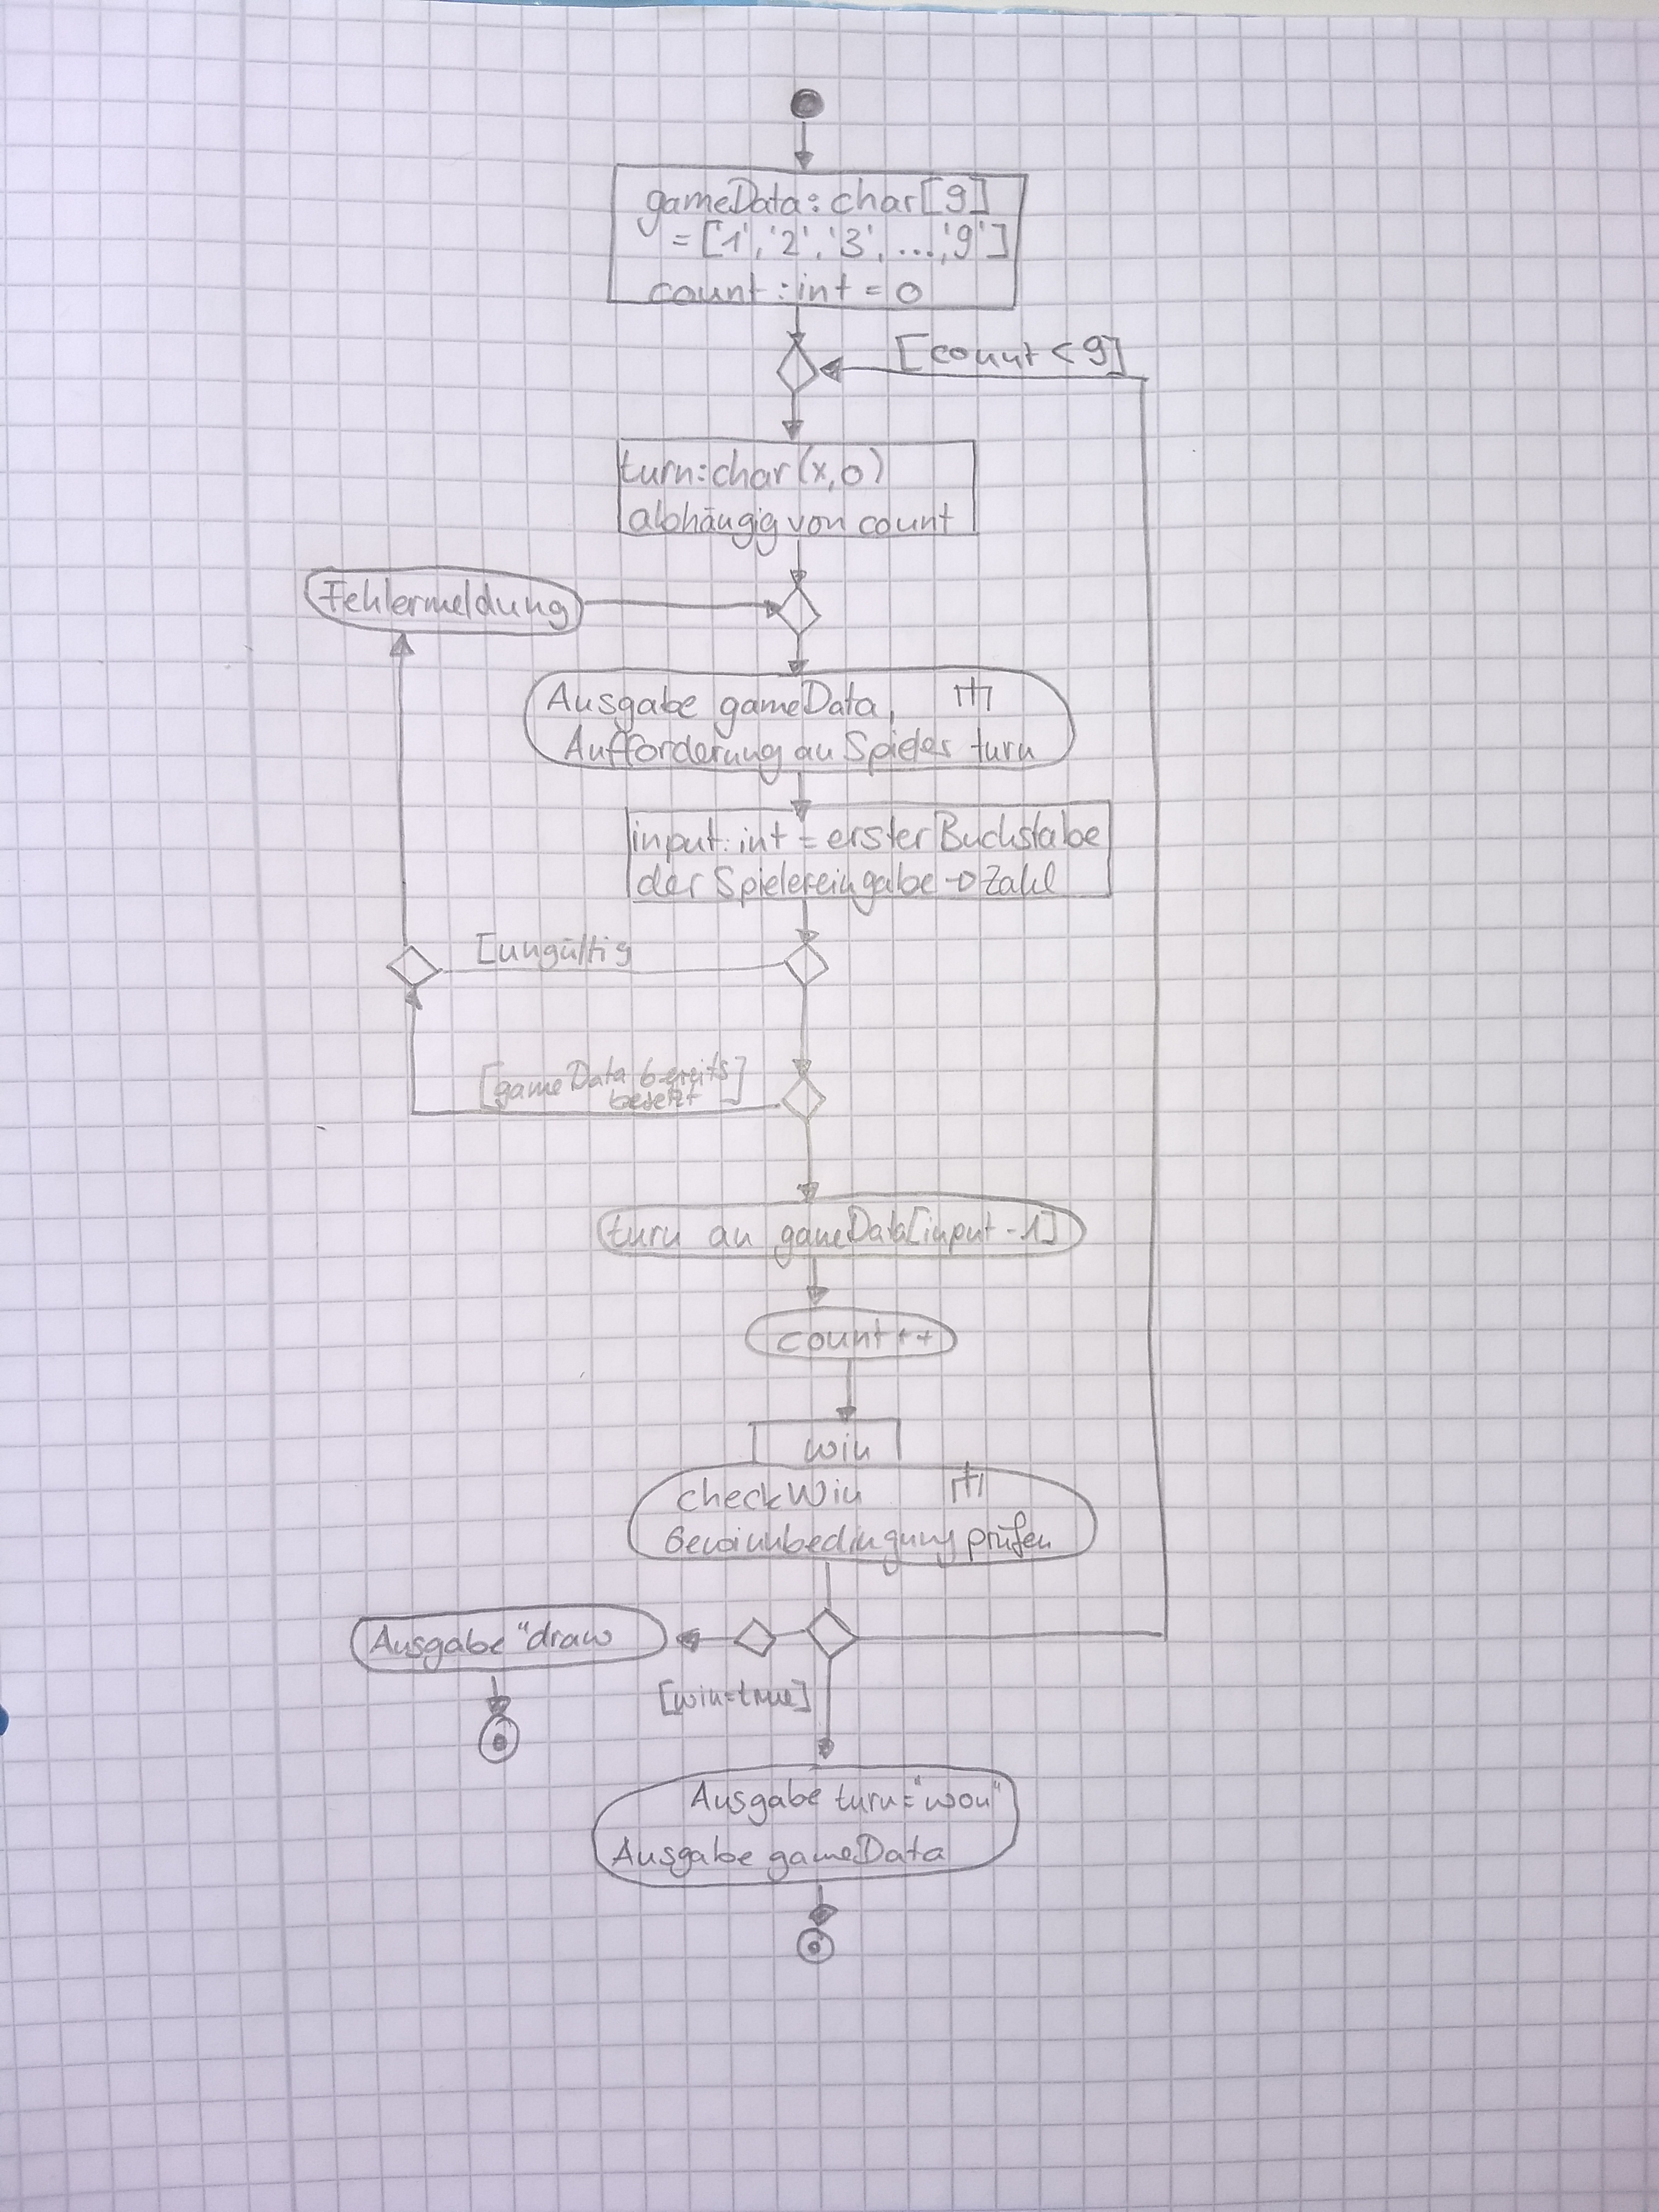 gameData: char[9]
= ['1', '2', '3', ..., '9']
count : int = 0
[count < 9]
turn: char (x, o)
abhängig von count
Fehlermeldung
Ausgabe gameData,
Aufforderung an Spieler turn
input: int = erster Buchstabe
der Spielereingabe → Zahl
[ungültig
[gameData bereits]
besetzt
turn an gameData[input - 1]
count++
win
checkWin
Gewinnbedingung prüfen
Ausgabe "draw
[win=true]
Ausgabe turn="won"
Ausgabe gameData